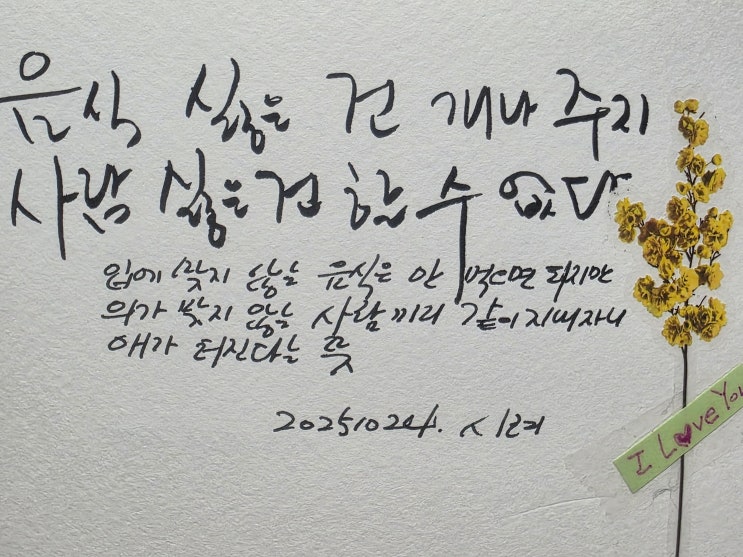 음식 싫은 건 개나 주지
사람 싫은 건 할 수 없다
입에 맞지 않는 음식은 안 먹으면 되지만
의가 맞지 않는 사람끼리 같이 지내자니
애가 터진다는 뜻
20251024.
I L♥ve You